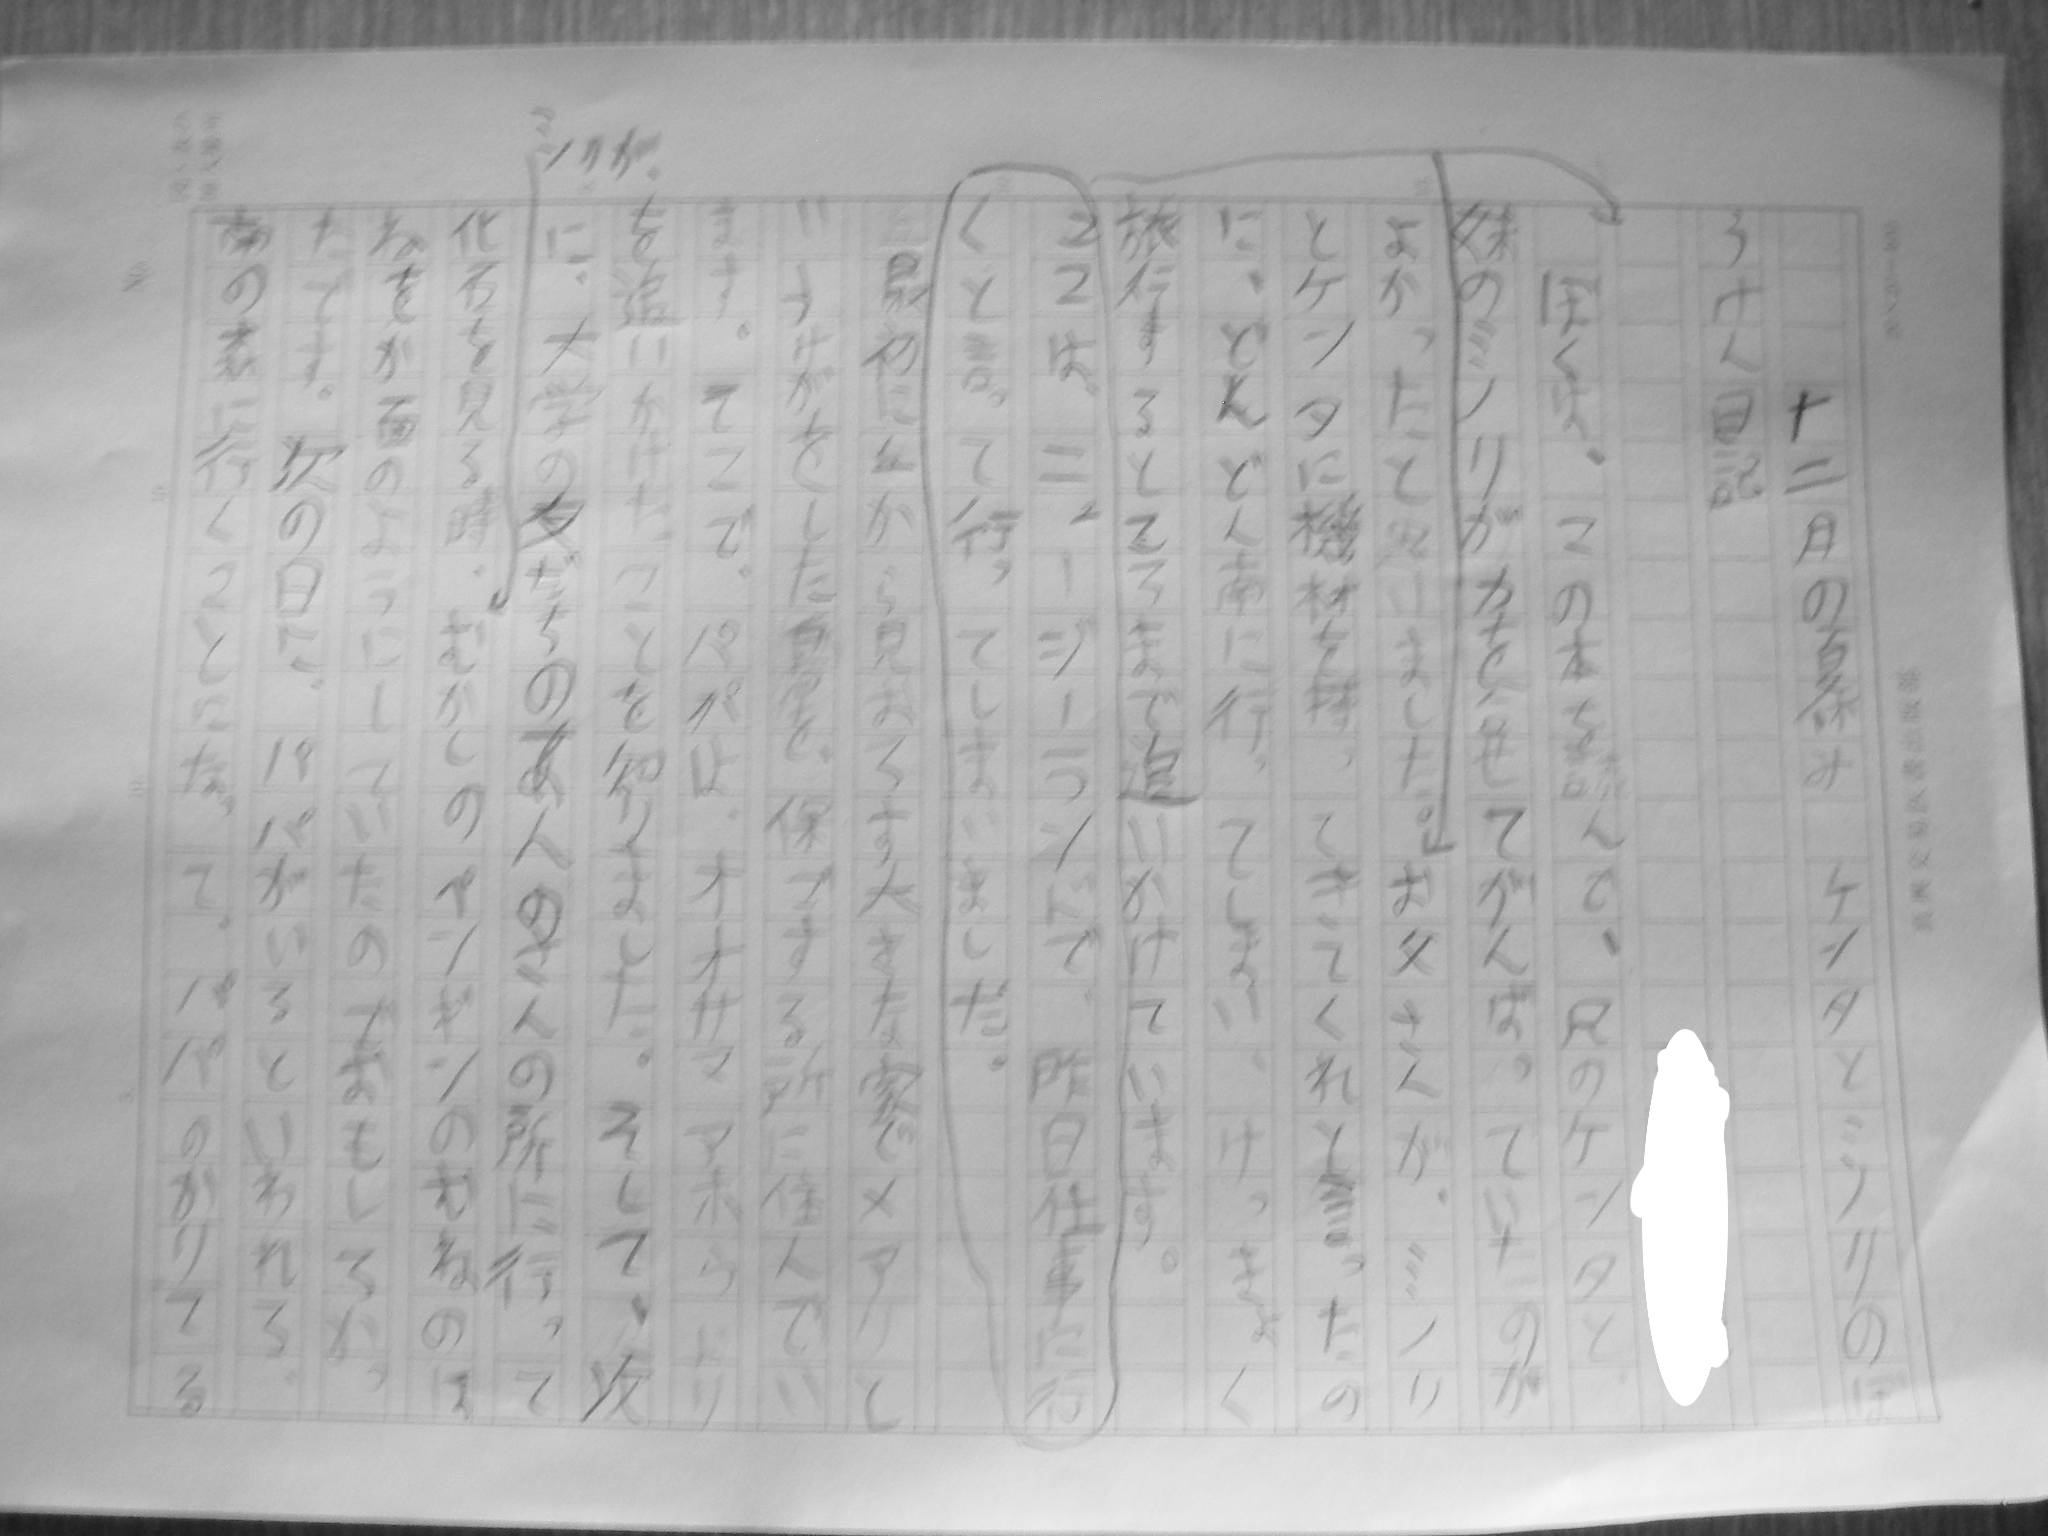 十二月の夏休み ケンタとミノリのぼ
うけん日記
ぼくは、この本を読んで、兄のケンタと、
妹のミノリが力を合せてがんばっていたのが
よかったと思いました。お父さんが、ミノリ
とケンタに機材を持ってきてくれと言ったの
に、どんどん南に行ってしまい、けっきょく
旅行するところまで追いかけています。
ここは、ニュージーランドで、昨日仕事に行
くと言って行ってしまいました。
最初に上から見おろす大きな家でメアリと
いうけがをした鳥を、保ごする所に住んでい
ます。そこで、パパは、オオサマアホウドリ
を追いかけたことを知りました。そして、次
ンタが、
に、大学の友だちのあんのさんの所に行って
化石を見る時、むかしのペンギンのむねのほ
ねをが面のようにしていたのがおもしろかっ
たです。次の日に、パパがいるといわれる、
南の森に行くことになって、パパのかりてる